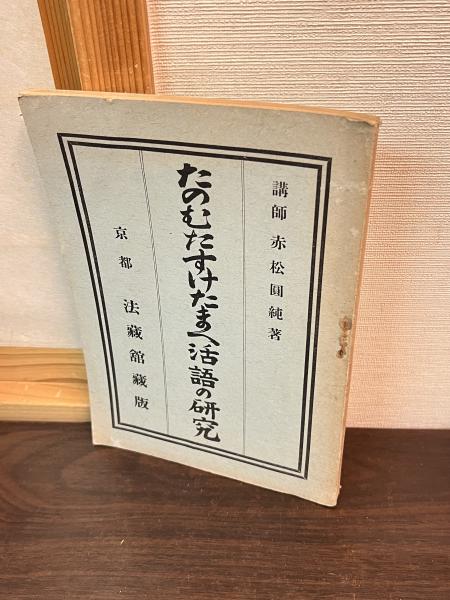 講師 赤松圓純著
たのむたすけたまへ活語の研究
京都 法藏館藏版